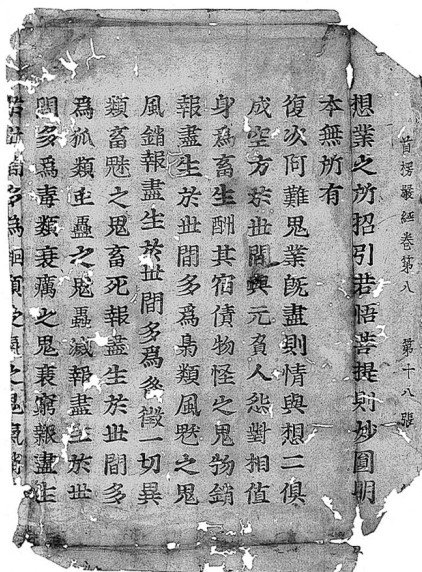 首楞嚴經卷第八 第十八張
想業之所招引若悟菩提則妙圓明
本無所有
復次阿難鬼業既盡則情與想二俱
成空方於世間與元負人怨對相值
身爲畜生酬其宿債物怪之鬼物銷
報盡生於世間多爲梟類風魃之鬼
風銷報盡生於世間多爲咎徵一切異
類畜魅之鬼畜死報盡生於世間多
爲狐類虫蠱之鬼蠱滅報盡生於世
間多爲毒類衰癘之鬼衰窮報盡生
世間多爲蛔類之鬼氣銷